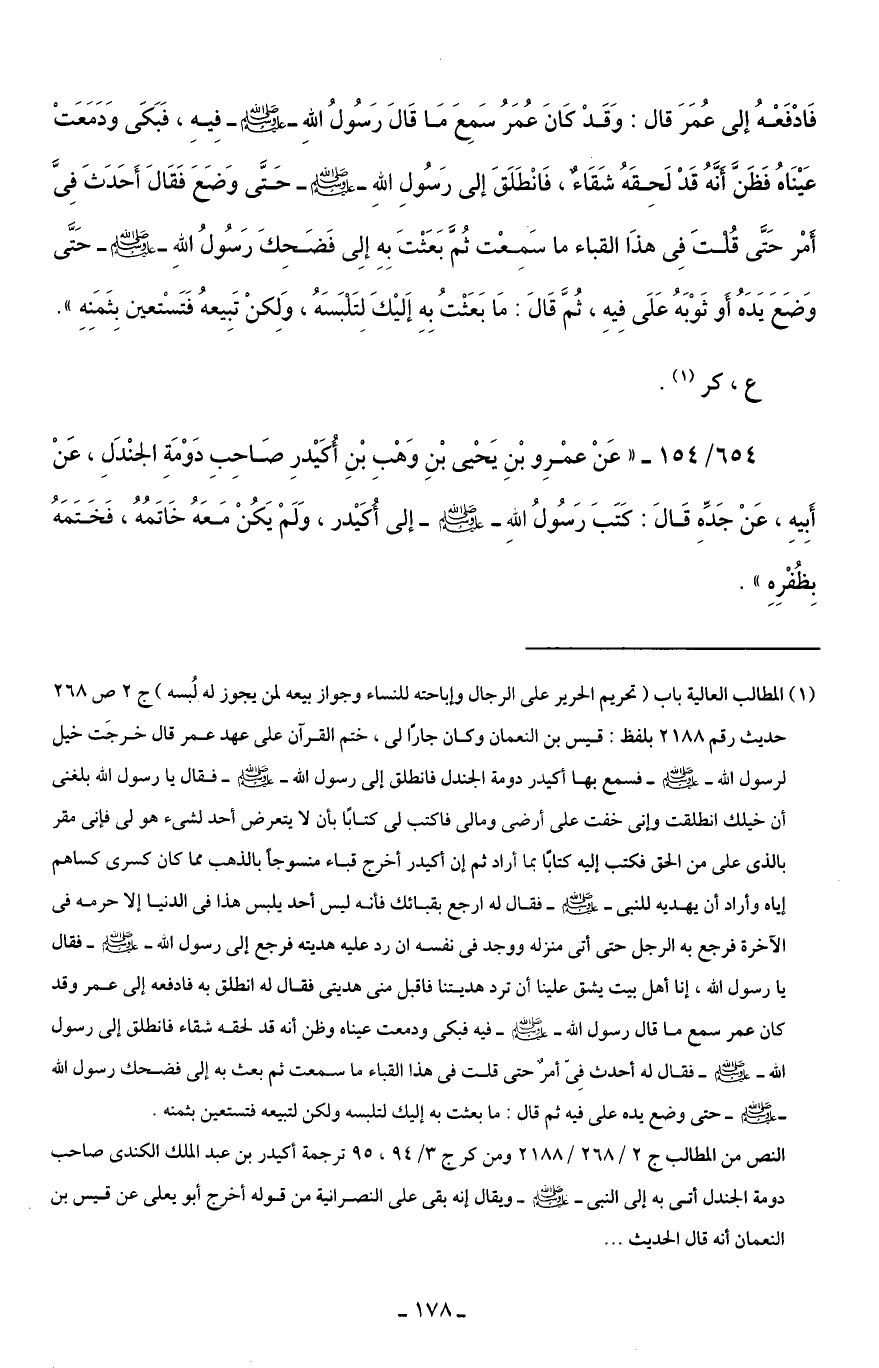 فَادْفَعْهُ إلى عُمَرَ قال : وَقَدْ كَانَ عُمَرُ سَمِعَ مَا قَالَ رَسُولُ الله -ﷺ- فِيهِ ، فَبَكَى وَدَمَعَتْ
عَيْنَاهُ فَظَنَّ أَنَّهُ قَدْ لَحِقَهُ شَقَاءٌ ، فَانْطَلَقَ إلى رَسُولِ الله -ﷺ- حَتَّى وَضَعَ فَقَالَ أَحَدَثَ فِىَّ
أَمْر حَتَّى قُلْتَ فِى هذَا القباء ما سَمِعْت ثُمَّ بَعَثْتَ بِهِ إلى فَضَحِكَ رَسُولُ الله -ﷺ- حَتَّى
وَضَعَ يَدَهُ أَو ثَوْبَهُ عَلَى فِيهِ ، ثُمَّ قَالَ : مَا بَعَثْتُ بِهِ إَلَيْكَ لِتَلْبَسَهُ ، وَلَكِنْ تَبِيعهُ فَتَسْتَعين بِثَمَنِهِ » .
ع ، كر (١) .
٦٥٤/ ١٥٤ - « عَنْ عمْرِو بْنِ يَحْيى بْنِ وَهْبِ بْنِ أُكَيْدرِ صَاحِبِ دَوْمَةِ الجَنْدَلِ ، عَنْ
أَبِيهِ ، عَنْ جَدِّهِ قَالَ : كَتَبَ رَسُولُ اللهِ - ﷺ - إلى أُكَيْدر ، وَلَمْ يَكُنْ مَعَهُ خَاتَمُهُ ، فَخَتَمَهُ
بِظُفْرِهِ » .
(١) المطالب العالية باب ( تحريم الحرير على الرجال وإباحته للنساء وجواز بيعه لمن يجوز له لُبسه ) ج ٢ ص ٢٦٨
حديث رقم ٢١٨٨ بلفظ : قيس بن النعمان وكان جارًا لى ، ختم القرآن على عهد عمر قال خرجَت خيل
لرسول الله - ﷺ - فسمع بها أكيدر دومة الجندل فانطلق إلى رسول الله - ﷺ - فقال يا رسول الله بلغنى
أن خيلك انطلقت وإنى خفت على أرضى ومالى فاكتب لى كتابًا بأن لا يتعرض أحد لشىء هو لى فإنى مقر
بالذى على من الحق فكتب إليه كتابًا بما أراد ثم إن أكيدر أخرج قباء منسوجاً بالذهب مما كان كسرى كساهم
إياه وأراد أن يهديه للنبى - ﷺ - فقال له ارجع بقبائك فأنه ليس أحد يلبس هذا فى الدنيا إلا حرمه فى
الآخرة فرجع به الرجل حتى أتى منزله ووجد فى نفسه ان رد عليه هديته فرجع إلى رسول الله - ﷺ - فقال
يا رسول الله ، إنا أهل بيت يشق علينا أن ترد هديتنا فاقبل منى هديتى فقال له انطلق به فادفعه إلى عمر وقد
كان عمر سمع ما قال رسول الله - ﷺ - فيه فبكى ودمعت عيناه وظن أنه قد لحقه شقاء فانطلق إلى رسول
الله - ﷺ - فقال له أحدث فىّ أمرٌ حتى قلت فى هذا القباء ما سمعت ثم بعث به إلى فضحك رسول الله
-ﷺ- حتى وضع يده على فيه ثم قال : ما بعثت به إليك لتلبسه ولكن لتبيعه فتستعين بثمنه .
النص من المطالب ج ٢ / ٢٦٨ / ٢١٨٨ ومن كر ج ٣/ ٩٤ ، ٩٥ ترجمة أكيدر بن عبد الملك الكندى صاحب
دومة الجندل أتى به إلى النبى - ﷺ - ويقال إنه بقى على النصرانية من قوله أخرج أبو يعلى عن قيس بن
النعمان أنه قال الحديث ...
- ١٧٨ -